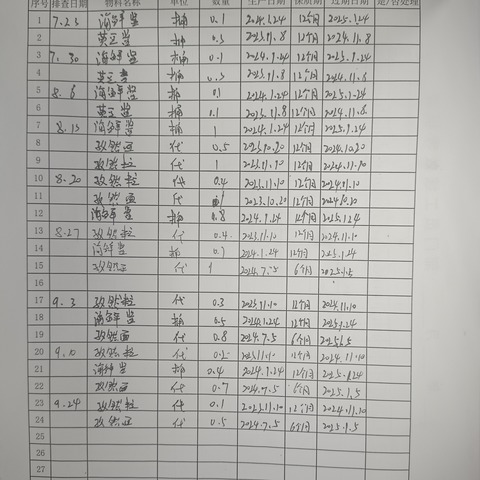 序号 排查日期 物料名称 单位 数量 生产日期 保质期 过期日期 是否处理
1 7.23 海鲜酱 桶 0.1 2024.1.24 12个月 2025.1.24
2 黄豆酱 桶 0.3 2023.11.8 12个月 2024.11.8
3 7.30 海鲜酱 桶 0.1 2024.1.24 12个月 2025.1.24
4 黄豆酱 桶 0.3 2023.11.8 12个月 2024.11.8
5 8.6 海鲜酱 桶 0.1 2024.1.24 12个月 2025.1.24
6 黄豆酱 桶 0.1 2023.11.8 12个月 2024.11.8
7 8.13 海鲜酱 桶 1 2024.1.24 12个月 2025.1.24
8 孜然面 代 0.5 2023.10.20 12个月 2024.10.20
9 孜然粒 代 1 2023.11.10 12个月 2024.11.10
10 8.20 孜然粒 代 0.4 2023.11.10 12个月 2024.11.10
11 孜然面 代 1 2023.10.20 12个月 2024.10.20
12 海鲜酱 桶 0.8 2024.1.24 12个月 2025.1.24
13 8.27 孜然粒 代 0.4 2023.11.10 12个月 2024.11.10
14 海鲜酱 桶 0.7 2024.1.24 12个月 2025.1.24
15 孜然面 代 1 2024.7.5 6个月 2025.1.5
17 9.3 孜然粒 代 0.3 2023.11.10 12个月 2024.11.10
18 海鲜酱 桶 0.5 2024.1.24 12个月 2025.1.24
19 孜然面 代 0.8 2024.7.5 6个月 2025.1.5
20 9.10 孜然粒 代 0.2 2023.11.10 12个月 2024.11.10
21 海鲜酱 桶 0.4 2024.1.24 12个月 2025.1.24
22 孜然面 代 0.7 2024.7.5 6个月 2025.1.5
23 9.24 孜然粒 代 0.1 2023.11.10 12个月 2024.11.10
24 孜然面 代 0.5 2024.7.5 6个月 2025.1.5
25
26
27